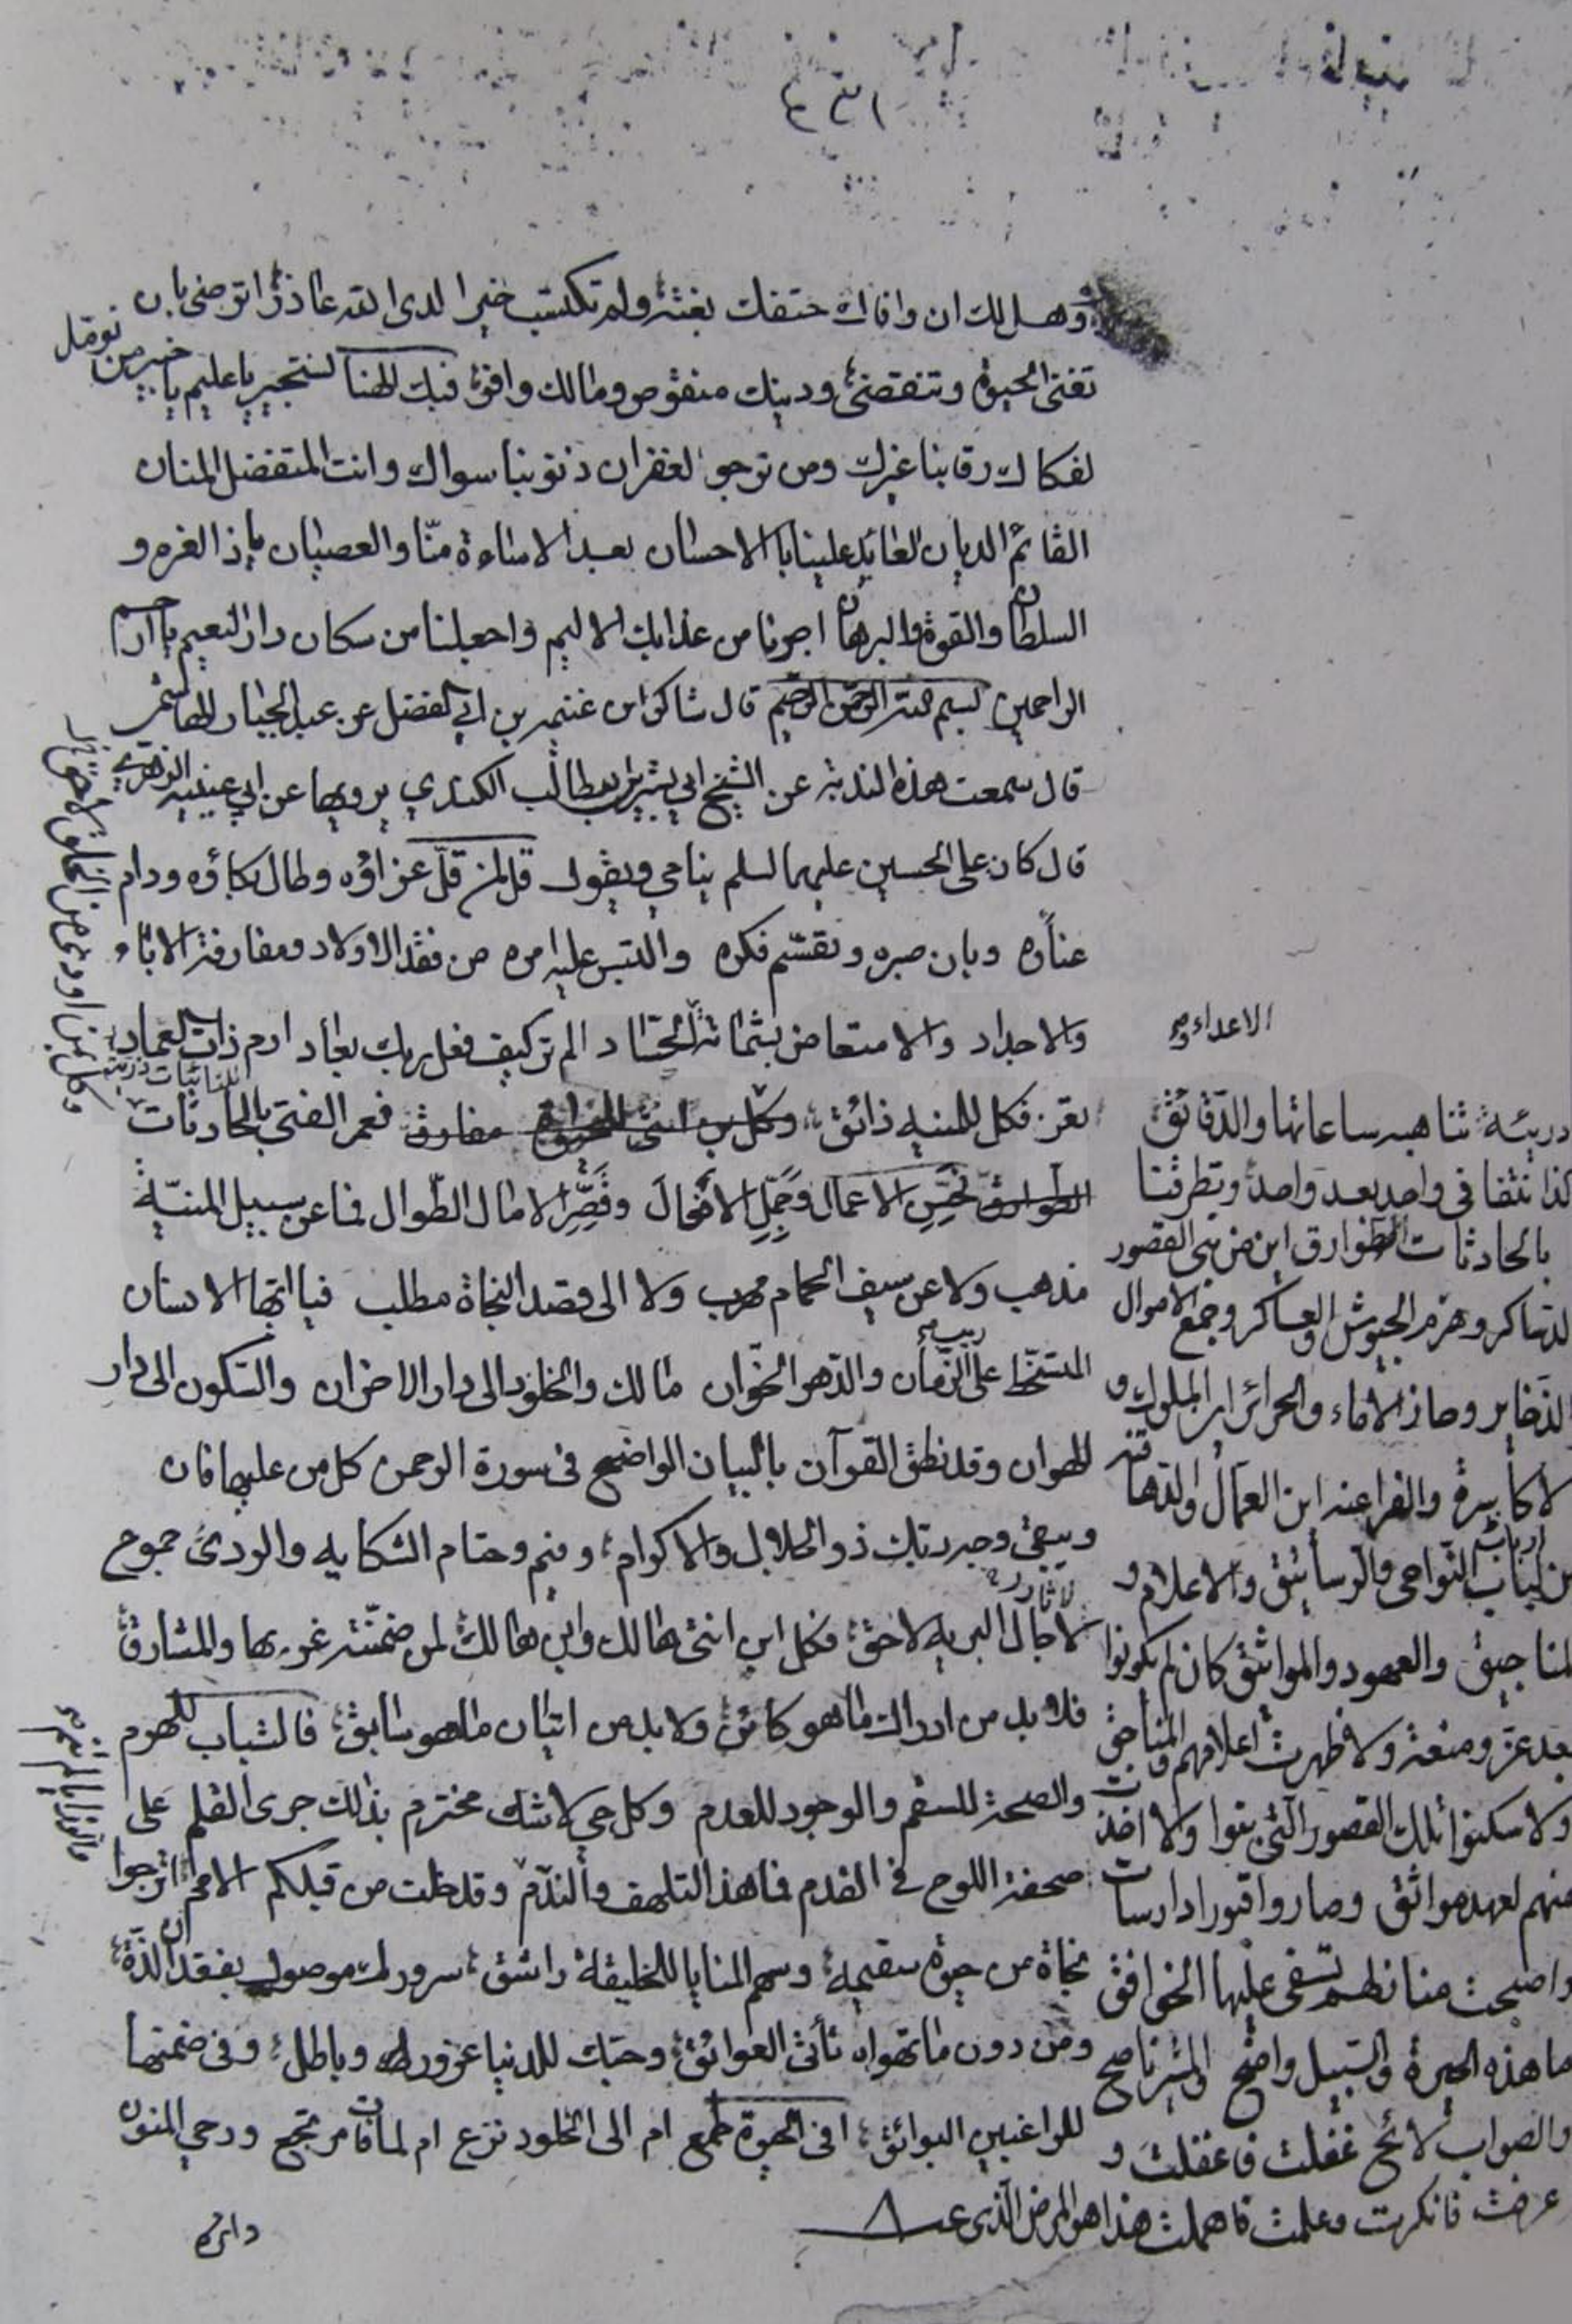 وهل لك ان وافاك حتفك بغتة ولم تكتسب خيرا لدى الله عاذر اترضى بان
تفنى الحيوة وتنقضي ودينك منقوص ومالك وافر فبك الهنا نستجير يا عليم يا خبير من نومل
لفكاك رقابنا غيرك ومن نرجو لغفران ذنوبنا سواك وانت المتفضل المنان
القائم الديان العايد علينا بالاحسان بعد الاساءة منّا والعصيان ياذا العزه و
السلطان والقوة والبرهان اجرنا من عذابك الاليم واجعلنا من سكان دار النعيم يا ارحم
الراحمين بسم الله الرحمن الرحيم قال شاكر ابن غنيمه بن ابي الفضل عن عبد الجبار الهاشمي
قال سمعت هذه الندبة عن الشيخ ابي بشر بن ابيطالب الكندي يرويها عن ابي عيينه الزهري
قال كان علي الحسين عليهما السلم يناجي ويقول قل لمن قلّ عزاؤه وطال بكاؤه ودام
عناؤه وبان صبره وتقسّم فكره والتبس عليه امره من فقد الاولاد ومفارقة الاباء
والاجداد والامتعاض بشماتة الحسّاد الم تر كيف فعل ربك بعاد ارم ذات العماد
تعز فكل للمنيه ذائق وكل ابن انثى للحيوة مفارق فعمر الفتى بالحادثات
الطوارق حَسِّنِ الاعمال وَجَمِّلِ الافعالَ وقَصِّرِ الامال الطّوال فما عن سبيل المنيّة
مذهب ولا عن سيف الحمام مهرب ولا الى قصد النجاة مطلب فيا ايّها الانسان
المتسخّط على ريب الزّمان والدّهر الخوّان مالك والخلود الى دار الاحزان والسّكون الى دار
الهوان وقد نطق القرآن بالبيان الواضح في سورة الرحمن كل من عليها فان
ويبقى وجه ربك ذو الجلال والاكرام وفيم وحتام الشكايه والردى جموح
لاجال البريه لاحق فكل ابن انثى هالك وابن هالك لمن ضمّنته غربها والمشارق
فلابد من ادراك ما هو كائن ولابد من اتيان ما هو سابق فالشباب للهرم
والصحة للسقم والوجود للعدم وكل حي لاشك مخترم بذلك جرى القلم على
صحفة اللوح في القدم فما هذا التلهف والندّم وقد خلت من قبلكم الامم اترجوا
نجاة من حيوة سقيمه وسهم المنايا للخليقة راشق سرورك موصول بفقدان لذّة
ومن دون ما تهواه تأتي العوائق وحبّك للدنيا غرور وباطل وفي ضمنها
للراغبين البوائق افي الحيوة طمع ام الى الخلود نزع ام لما فات مرتجع ورحى المنون
دايره
الاعداء و
دريئة تناهبه ساعاتها والدّقائق
كذا نتفانى واحد بعد واحد وتطرقنا
بالحادثات الطوارق اين من بنى القصور
و هزم الجيوش والعساكر وجمع الاموال
الذخاير وحاز الاماء والحرائر اين الملوك و
الفراعنه اين العمال والدّهاقنه
ارباب النّواحي والرساتيق والاعلام و
المناجيق والعهود والمواثيق كان لم يكونوا
بعد عز ومنعة ولا ظهرت اعلامهم والمناجق
ولا سكنوا تلك القصور الّتي بنوا ولا اخذت
منهم لعهد مواثق وصاروا قبورا دارسات
واصبحت منازلهم تسفى عليها الخوافق
ما هذه الحيرة والسّبيل واضح والمشير ناصح
والصواب لائح عقلت فاغفلت و
عرفت فانكرت وعلمت فاهملت هذا هو المرض الّذي عـ